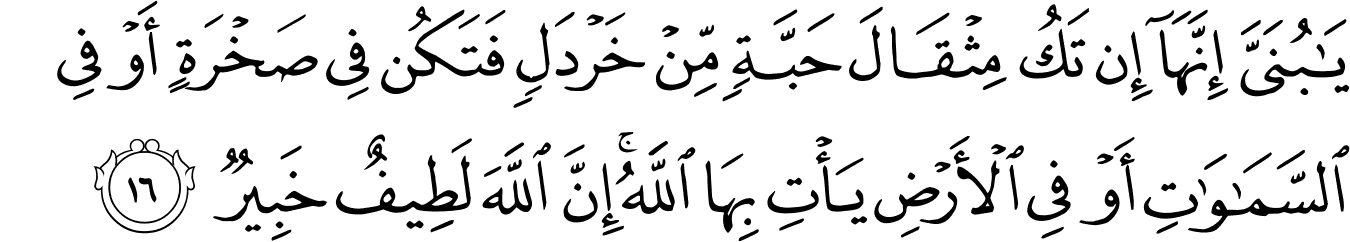 يَـٰبُنَىَّ إِنَّهَآ إِن تَكُ مِثْقَالَ حَبَّةٍ مِّنْ خَرْدَلٍ فَتَكُن فِى صَخْرَةٍ أَوْ فِى
ٱلسَّمَـٰوَٰتِ أَوْ فِى ٱلْأَرْضِ يَأْتِ بِهَا ٱللَّهُ ۚ إِنَّ ٱللَّهَ لَطِيفٌ خَبِيرٌ ١٦